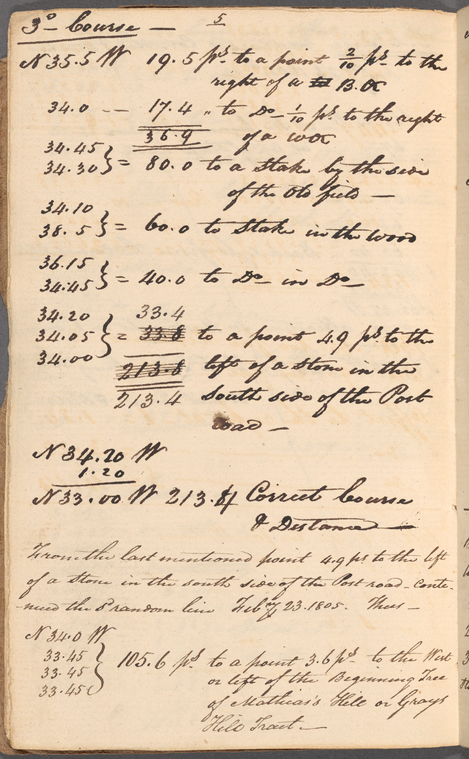 5
3º Course —
N 35.5 W 19.5 ps to a point 2/10 ps to the
right of a B. O
34.0 -- 17.4 " to Do 1/10 ps to the right
36.9 of a WO
34.45
34.30 } = 80.0 to a Stake by the side
of the Old field —
34.10
38.5 } = 60.0 to Stake in the Wood
36.15
34.45 } = 40.0 to Do in Do
34.20 33.4
34.05 } = 33.8 to a point 4.9 ps to the
34.00
213.8 left of a Stone in the
213.4 South side of the Post
road —
N 34.20 W
1.20
N 33.00 W 213.4 Correct Course
& Distance —
From the last mentioned point 4.9 ps to the left
of a stone in the south side of the Post road - conti-
-nued the random line Feby 23. 1805. Thus —
N 34.0 W
33.45
33.45 } 105.6 ps to a point 3.6 ps to the West
33.45 or left of the Beginning Tree
of Mathias's Hill or Grays
Hill Tract —